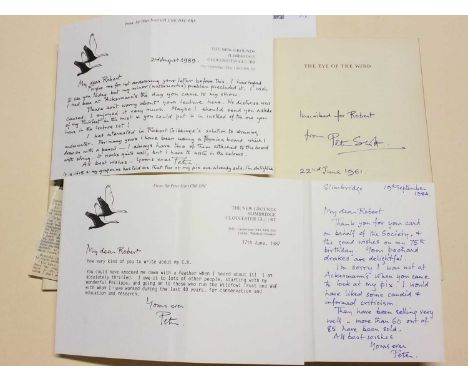 From: Sir Peter Scott CH CBE DSC FRS
THE NEW GROUNDS
SLIMBRIDGE
GLOUCESTER GL2 7BT
2nd August 1989
My dear Robert
forgive me for not answering your letter before this. I had hoped
to see you today but my minor (intestinal) problem precluded it. I wish
I had been at Ackermann's the day you came to my show.
Please don't worry about your lecture here. No distress was
caused. I enjoyed it very much. Maybe I should send you a slide
of my in the mist so you could put it in instead of the one you
have in the lecture set!
I was interested in Robert Gillmor's solution to drawing
underwater. For many years I have been using a Formica board which I
draw on with a pencil - I always have one of them attached to the board
with string. It works quite well, but I have to write in the colours.
All best wishes - Yours ever Peter
THE EYE OF THE WIND
Inscribed for Robert
from Peter Scott
22nd June 1961.
From: Sir Peter Scott CBE DSC
THE NEW GROUNDS
SLIMBRIDGE
GLOUCESTER GL2 7BT
17th June, 1987
My dear Robert
How very kind of you to write about my C.H.
You could have knocked me down with a feather when I heard about it! I am
absolutely thrilled. I owe it to lots of other people, starting with my
wonderful Philippa, and going on to those who run the Wildfowl Trust and WWF
with whom I have worked during the last 40 years, for conservation and
education and research.
Yours ever
Peter
Slimbridge 19th September
1984
My dear Robert
Thank you for your card
on behalf of the Society, &
the good wishes on my 75th
birthday. Your pochard
drakes are delightful
I'm sorry I was not at
Ackermann's when you came
to look at my pix. I would
have liked some candid &
informed criticism.
They have been selling very
well - more than 60 out of
85 have been sold.
All best wishes
Yours ever
Peter.